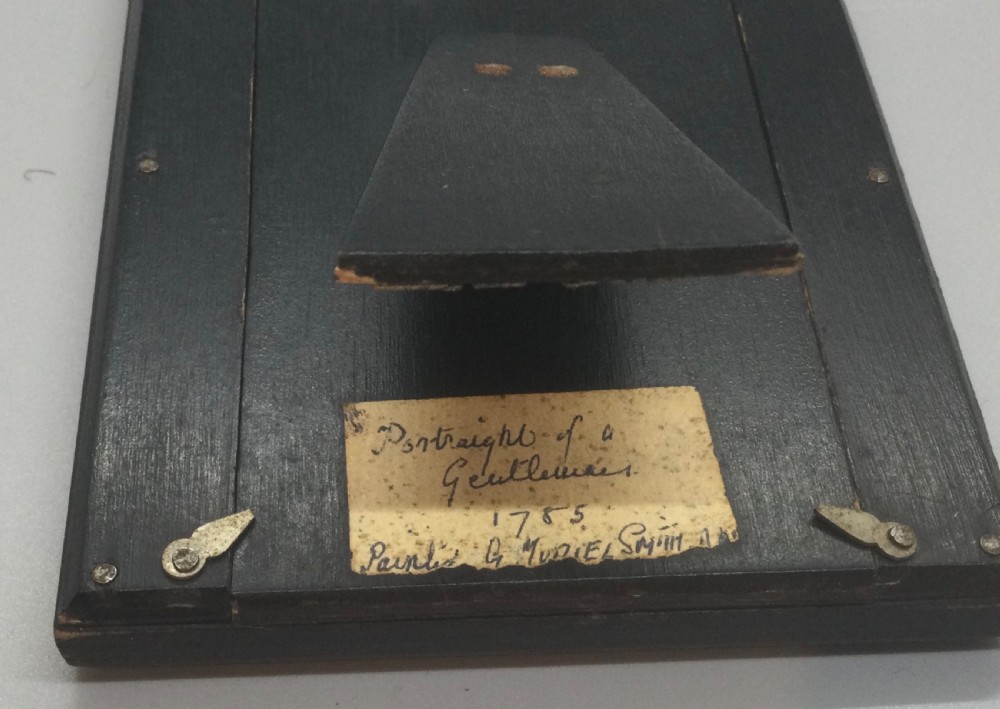 Portraight of a
Gentleman
1785
G MURIEL SMITH